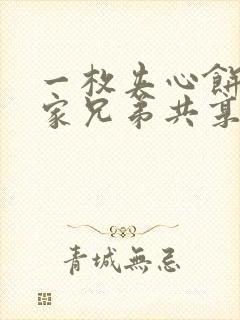 一枚夹心餅
家兄弟共
青城無忌